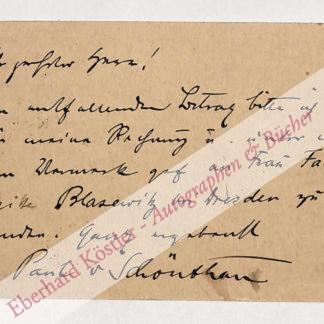 geehrter Herr!
entfallenden Betrag bitte ich
meine Rechnung u.
Vermerk gef. an Frau
Blasewitz bei Dresden zu
Ganz ergebenst
Paul v Schönthan
Eberhard Köstler - Autographen & Bücher